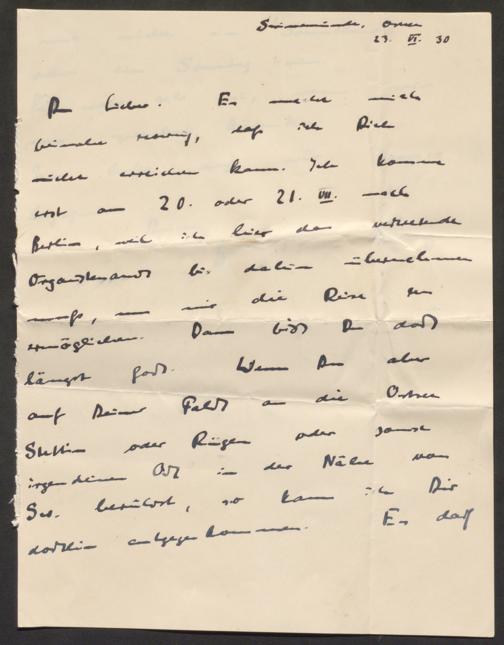 Swinemünde, Ostsee
23. VI. 30
Du Lieber. Es macht mich
beinahe traurig, daß ich Dich
nicht erreichen kann. Ich komme
erst am 20. oder 21. VII. nach
Berlin, weil ich hier den
Organistenamt bis dahin übernehmen
muß, um mir die Reise zu
ermöglichen. Dann bist Du dort
längst fort. Wenn Du aber
auf Deiner Fahrt an die Ostsee
Stettin oder Rügen oder sonst
irgendeinen Ort in der Nähe von
Sw. berührst, so kann ich Dir
dorthin entgegenkommen. Es darf